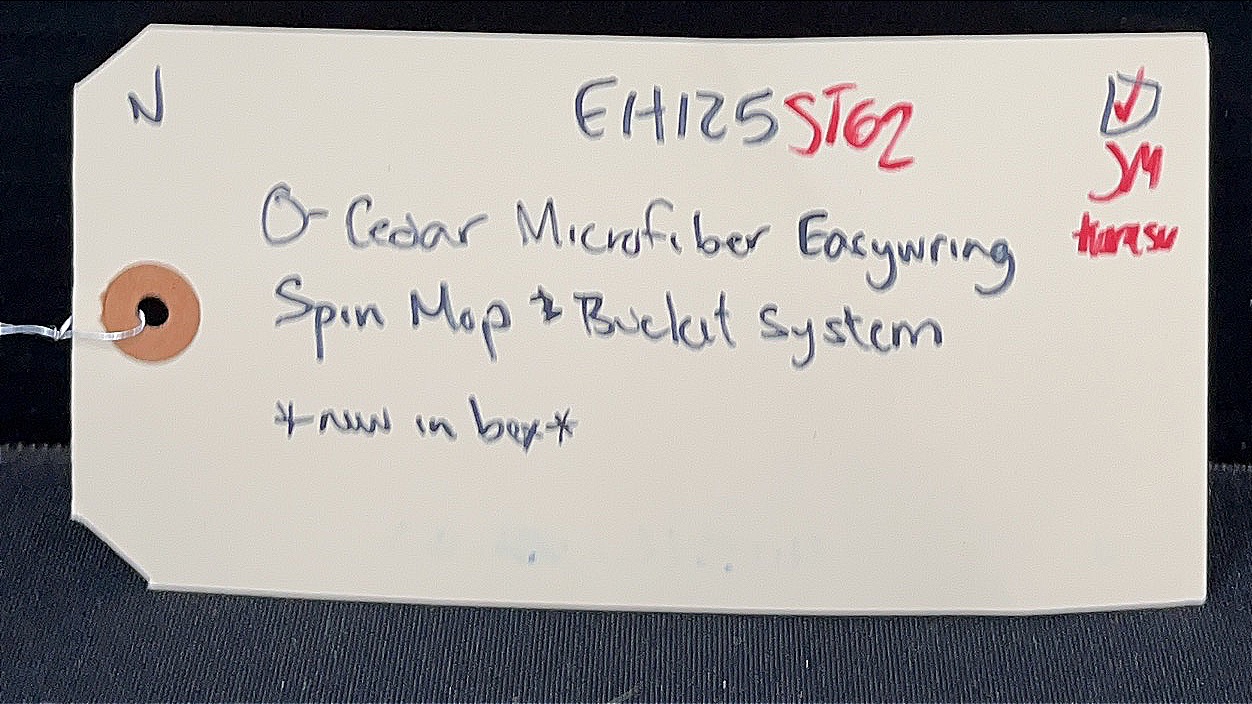 N
EH125ST62
☑
JM
O-Cedar Microfiber Easywring
Spin Mop & Bucket System
*new in box*